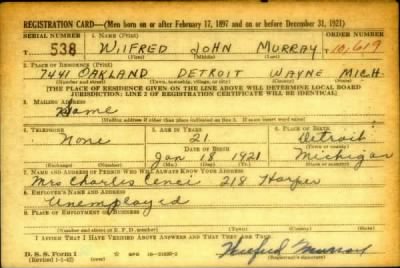 REGISTRATION CARD—(Men born on or after February 17, 1897 and on or before December 31, 1921)
SERIAL NUMBER 1. NAME (Print) ORDER NUMBER
T 538 WILFRED JOHN MURRAY T 10,619
(First) (Middle) (Last)
2. PLACE OF RESIDENCE (Print)
7441 OAKLAND DETROIT WAYNE MICH.
(Number and street) (Town, township, village, or city) (County) (State)
[THE PLACE OF RESIDENCE GIVEN ON THE LINE ABOVE WILL DETERMINE LOCAL BOARD
JURISDICTION; LINE 2 OF REGISTRATION CERTIFICATE WILL BE IDENTICAL]
3. MAILING ADDRESS
Same
[Mailing address if other than place indicated on line 2. If same insert word same]
4. TELEPHONE 5. AGE IN YEARS 6. PLACE OF BIRTH
None 21 Detroit
DATE OF BIRTH (Town or county)
Jan 18 1921 Michigan
(Exchange) (Number) (Mo.) (Day) (Yr.) (State or country)
7. NAME AND ADDRESS OF PERSON WHO WILL ALWAYS KNOW YOUR ADDRESS
Mrs Charles Cenci 218 Harper
8. EMPLOYER'S NAME AND ADDRESS
Unemployed
9. PLACE OF EMPLOYMENT OR BUSINESS
(Number and street or R. F. D. number) (Town) (County) (State)
I AFFIRM THAT I HAVE VERIFIED ABOVE ANSWERS AND THAT THEY ARE TRUE.
D. S. S. Form 1 Wilfred Murray
(Revised 1-1-42) (over) (Registrant's signature)